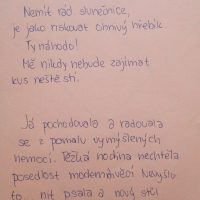 Nemít rád slunečnice,
je jako riskovat ohnivý hřebík.
Ty náhodo!
Mě nikdy nebude zajímat
kus neštěstí.
Já pochodovala a radovala
se z pomalu vymyšlených
nemocí. Těžká hodina nechtěla
posedlost modernávěcí. Nevyšlo
to, nit psala a nový stůl